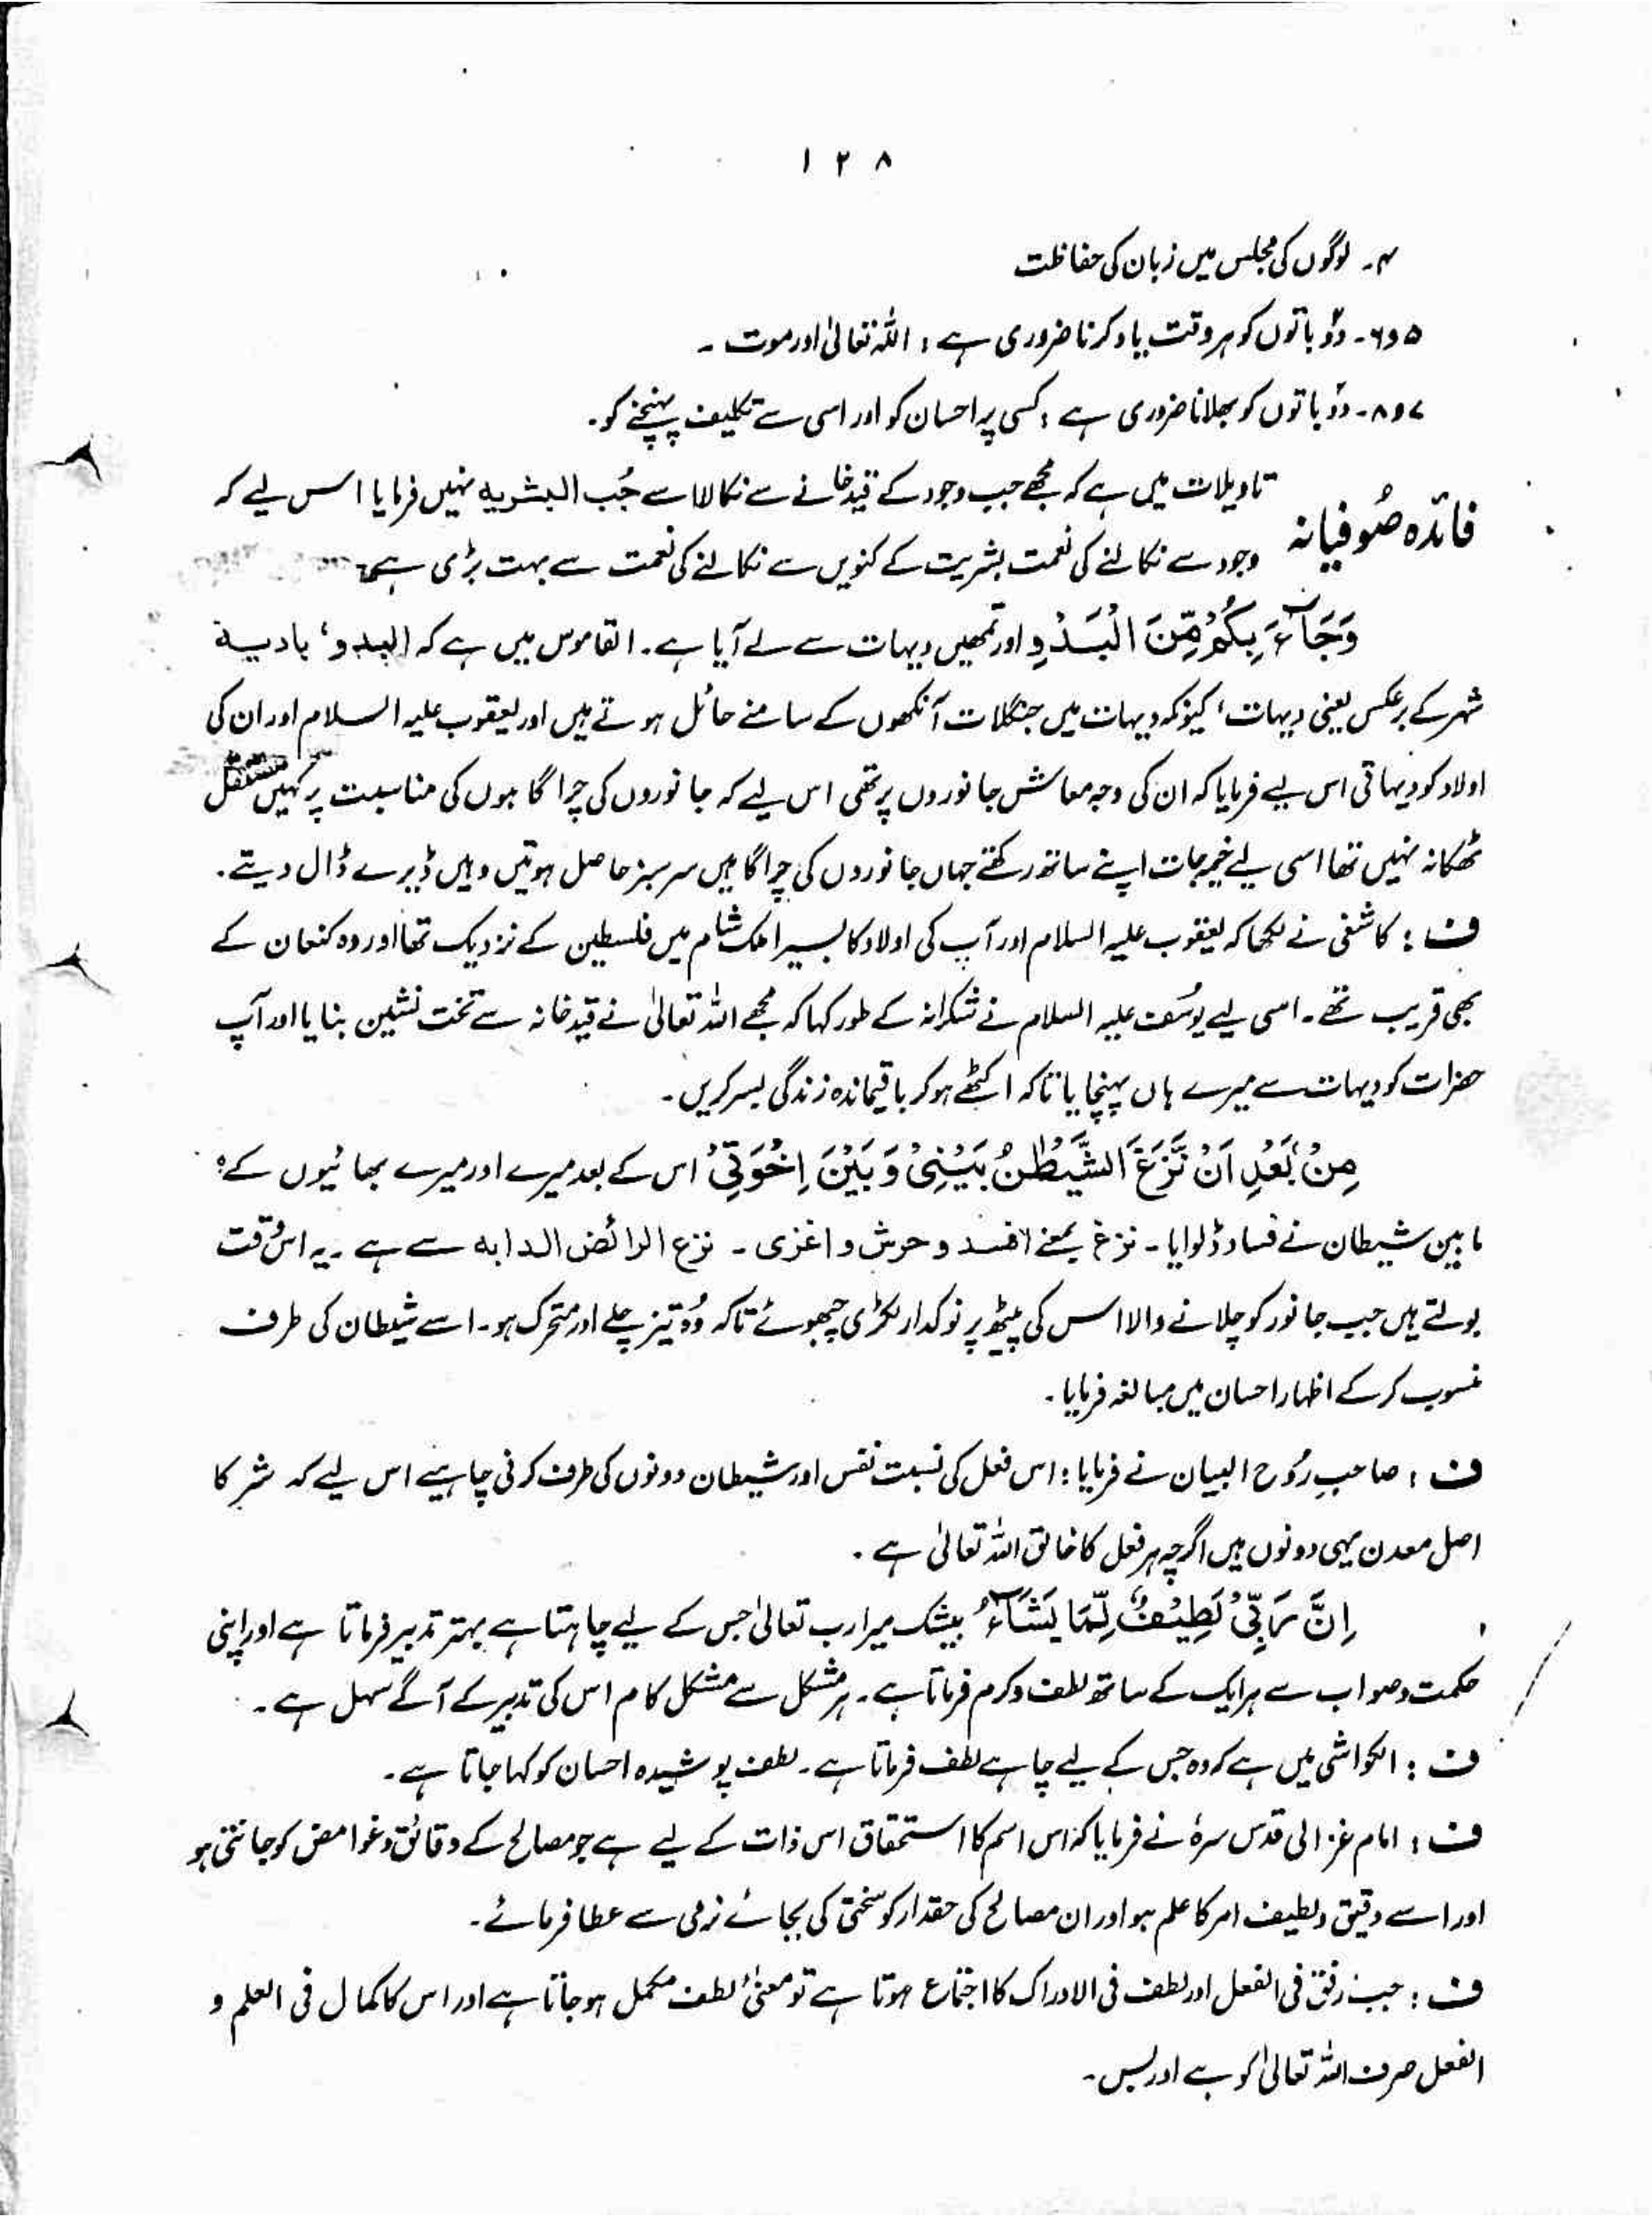 ۱۲۸
۴۔ لوگوں کی مجلس میں زبان کی حفاظت
۵و۶۔ دوؔ باتوں کو ہر وقت یاد کرنا ضروری ہے : اللہ تعالیٰ اور موت ۔
۷و۸۔ دوؔ باتوں کو بھلانا ضروری ہے : کسی پر احسان کو اور اسی سے تکلیف پہنچنے کو۔
فائدہ صُوفیانہ تاویلات میں ہے کہ مجھے جب وجود کے قیدخانے سے نکالا اسے جُب البشریہ نہیں فرمایا اس لیے کہ
وجود سے نکالنے کی نعمت بشریت کے کنویں سے نکالنے کی نعمت سے بہت بڑی ہے
وَجَآءَ بِكُمْ مِّنَ الْبَدْوِ اور تمھیں دیہات سے لے آیا ہے۔ القاموس میں ہے کہ البدو ، بادیۃ
شہر کے برعکس یعنی دیہات ، کیونکہ دیہات میں جنگلات آنکھوں کے سامنے حائل ہوتے ہیں اور یعقوب علیہ السلام اور ان کی
اولاد کو دیہاتی اس لیے فرمایا کہ ان کی وجہ معاش جانوروں پر تھی اس لیے کہ جانوروں کی چراگاہوں کی مناسبت پر کہیں مستقل
ٹھکانہ نہیں تھا اسی لیے خیمہ جات اپنے ساتھ رکھتے جہاں جانوروں کی چراگاہیں سرسبز حاصل ہوتیں وہیں ڈیرے ڈال دیتے۔
ف : کاشفی نے لکھا کہ یعقوب علیہ السلام اور آپ کی اولاد کا بسیرا ملک شام میں فلسطین کے نزدیک تھا اور وہ کنعان کے
بھی قریب تھے۔ اسی لیے یوسف علیہ السلام نے شکرانہ کے طور کہا کہ مجھے اللہ تعالیٰ نے قیدخانہ سے تخت نشین بنایا اور آپ
حضرات کو دیہات سے میرے ہاں پہنچایا تاکہ اکٹھے ہو کر باقیماندہ زندگی بسر کریں۔
مِنْۢ بَعْدِ اَنْ نَّزَغَ الشَّيْطٰنُ بَيْنِيْ وَبَيْنَ اِخْوَتِيْ اس کے بعد میرے اور میرے بھائیوں کے
مابین شیطان نے فساد ڈلوایا۔ نزغ بمعنے افسد و حرش و اغری ۔ نزع الرائض الدابہ سے ہے ۔ یہ اس وقت
بولتے ہیں جب جانور کو چلانے والا اس کی پیٹھ پر نوکدار لکڑی چبھوئے تاکہ وُہ تیز چلے اور متحرک ہو۔ اسے شیطان کی طرف
منسوب کر کے اظہار احسان میں مبالغہ فرمایا۔
ف : صاحب رُوح البیان نے فرمایا : اس فعل کی نسبت نفس اور شیطان دونوں کی طرف کرنی چاہیے اس لیے کہ شر کا
اصل معدن یہی دونوں ہیں اگرچہ ہر فعل کا خالق اللہ تعالیٰ ہے ۔
اِنَّ رَبِّيْ لَطِيْفٌ لِّمَا يَشَآءُ بیشک میرا رب تعالیٰ جس کے لیے چاہتا ہے بہتر تدبیر فرماتا ہے اور اپنی
حکمت و صواب سے ہر ایک کے ساتھ لطف و کرم فرماتا ہے۔ ہر مشکل سے مشکل کام اس کی تدبیر کے آگے سہل ہے ۔
ف : الکواشی میں ہے کہ وہ جس کے لیے چاہے لطف فرماتا ہے۔ لطف پوشیدہ احسان کو کہا جاتا ہے۔
ف : امام غزالی قدس سرہٗ نے فرمایا کہ اس اسم کا استحقاق اس ذات کے لیے ہے جو مصالح کے دقائق و غوامض کو جانتی ہو
اور اسے دقیق و لطیف امر کا علم ہو اور ان مصالح کی حقدار کو سختی کی بجائے نرمی سے عطا فرمائے۔
ف : جب رفق فی الفعل اور لطف فی الادراک کا اجتماع ہوتا ہے تو معنیٰ لطف مکمل ہو جاتا ہے اور اس کا کمال فی العلم و
الفعل صرف اللہ تعالیٰ کو ہے اور بس۔